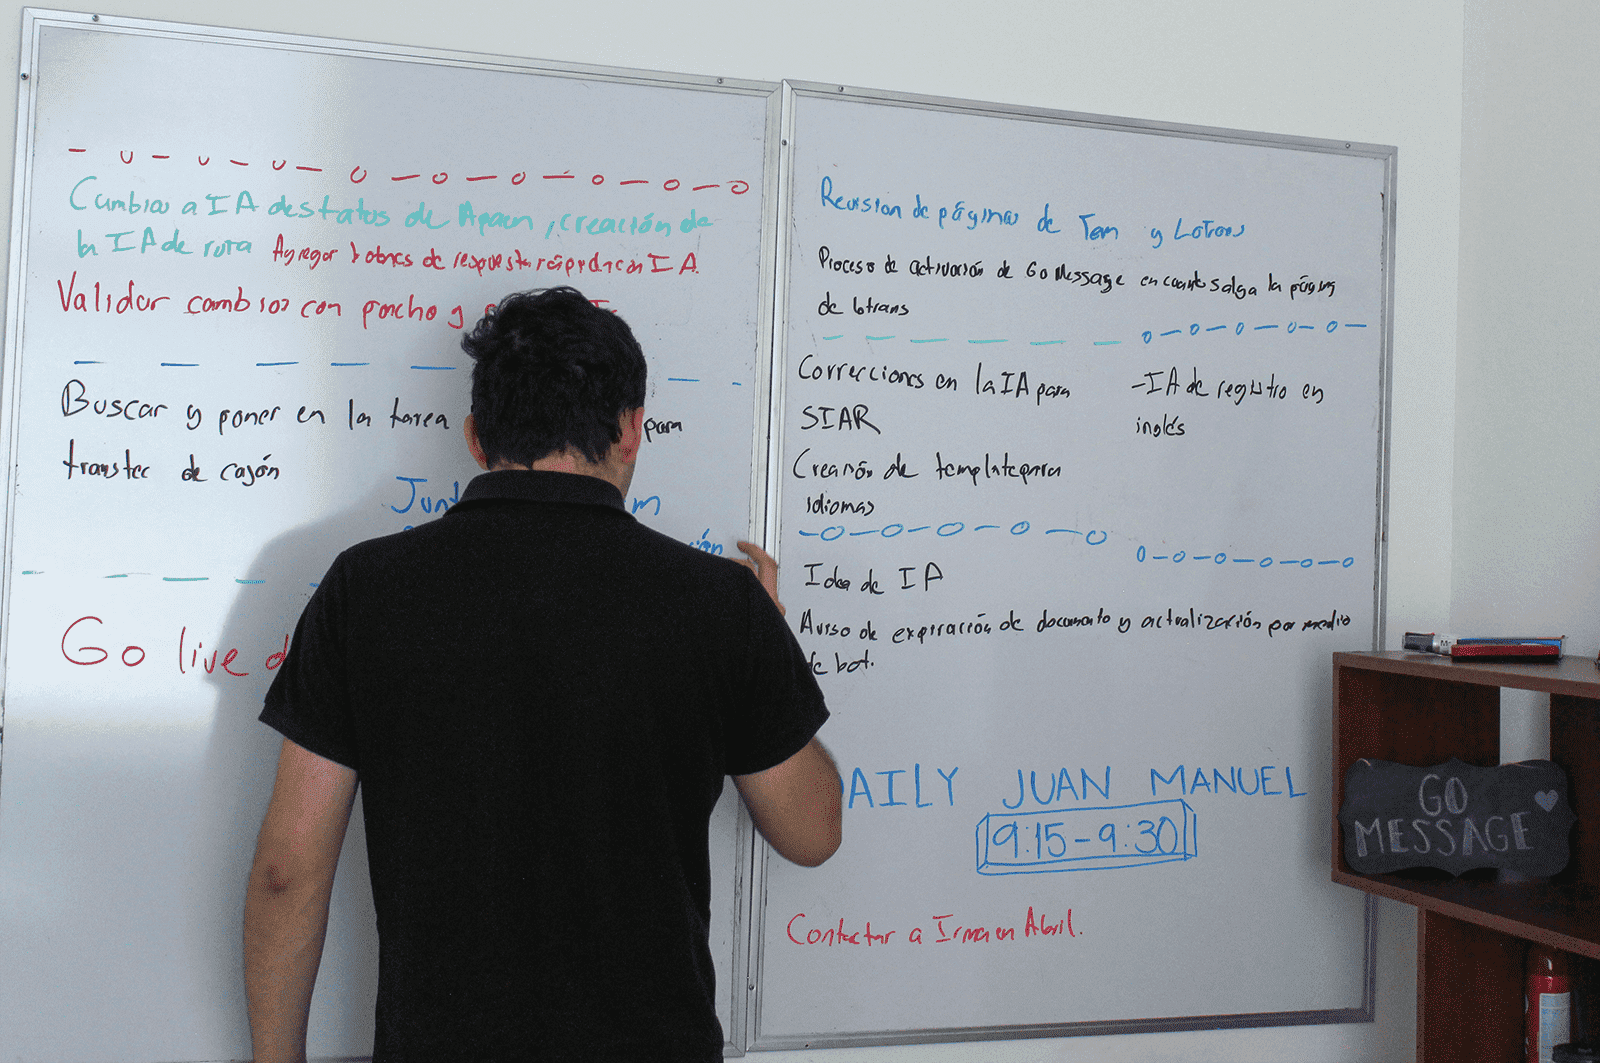 Cambios a IA de status de Apaen, creación de
la IA de ruta Agregar botones de respuesta rápida con IA.
Validar cambios con poncho y
Buscar y poner en la tarea para
transtec de cajón
Junt m
ción
Go live d
Revisión de páginas de Tem y Lotrans
Proceso de activación de Go Message en cuanto salga la página
de lotrans
Correcciones en la IA para
SIAR
Creación de template para
idiomas
-IA de registro en
inglés
Idea de IA
Aviso de expiración de documento y actualización por medio
de bot.
AILY JUAN MANUEL
9:15-9:30
Contactar a Irma en Abril.
GO
MESSAGE